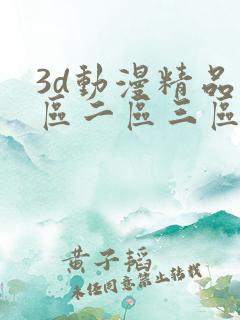 3d動漫精品
區二區三區
黃子韜
未經同意禁止轉載